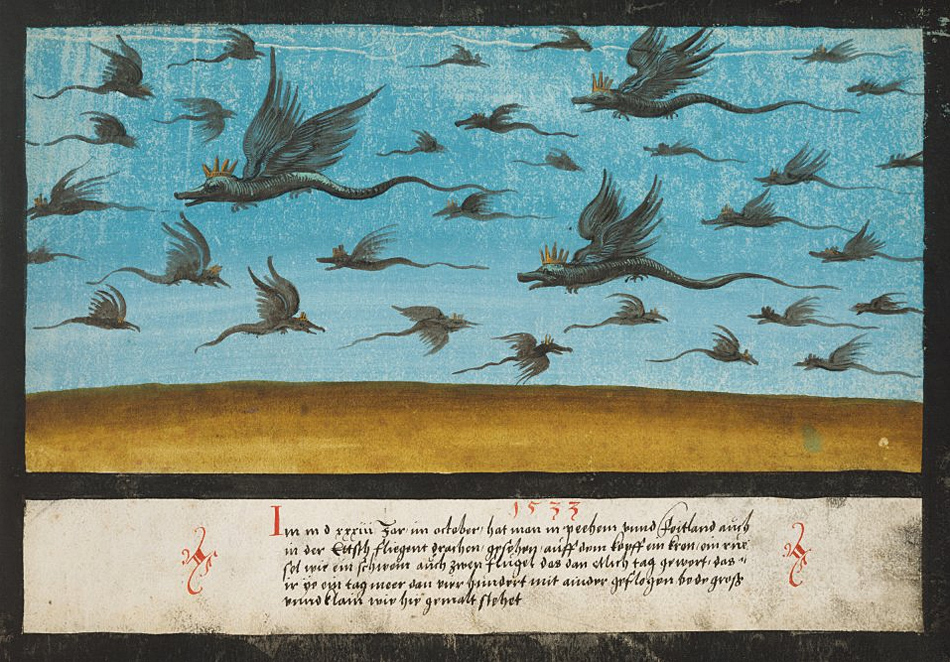 1533
Im m d xxxiii Jar im october hat man in peehem vnnd Voitland auch
in der Ettsch fliegent drachen gesehen auff dem kopff ein kron ein rue
sel wie ein schwein auch zwen flugel das dan etlich tag gewert das
ir ye ein tag meer dan vier hundert mit ainder geflogen bede gross
vnnd klain wie hie gemalt stehet